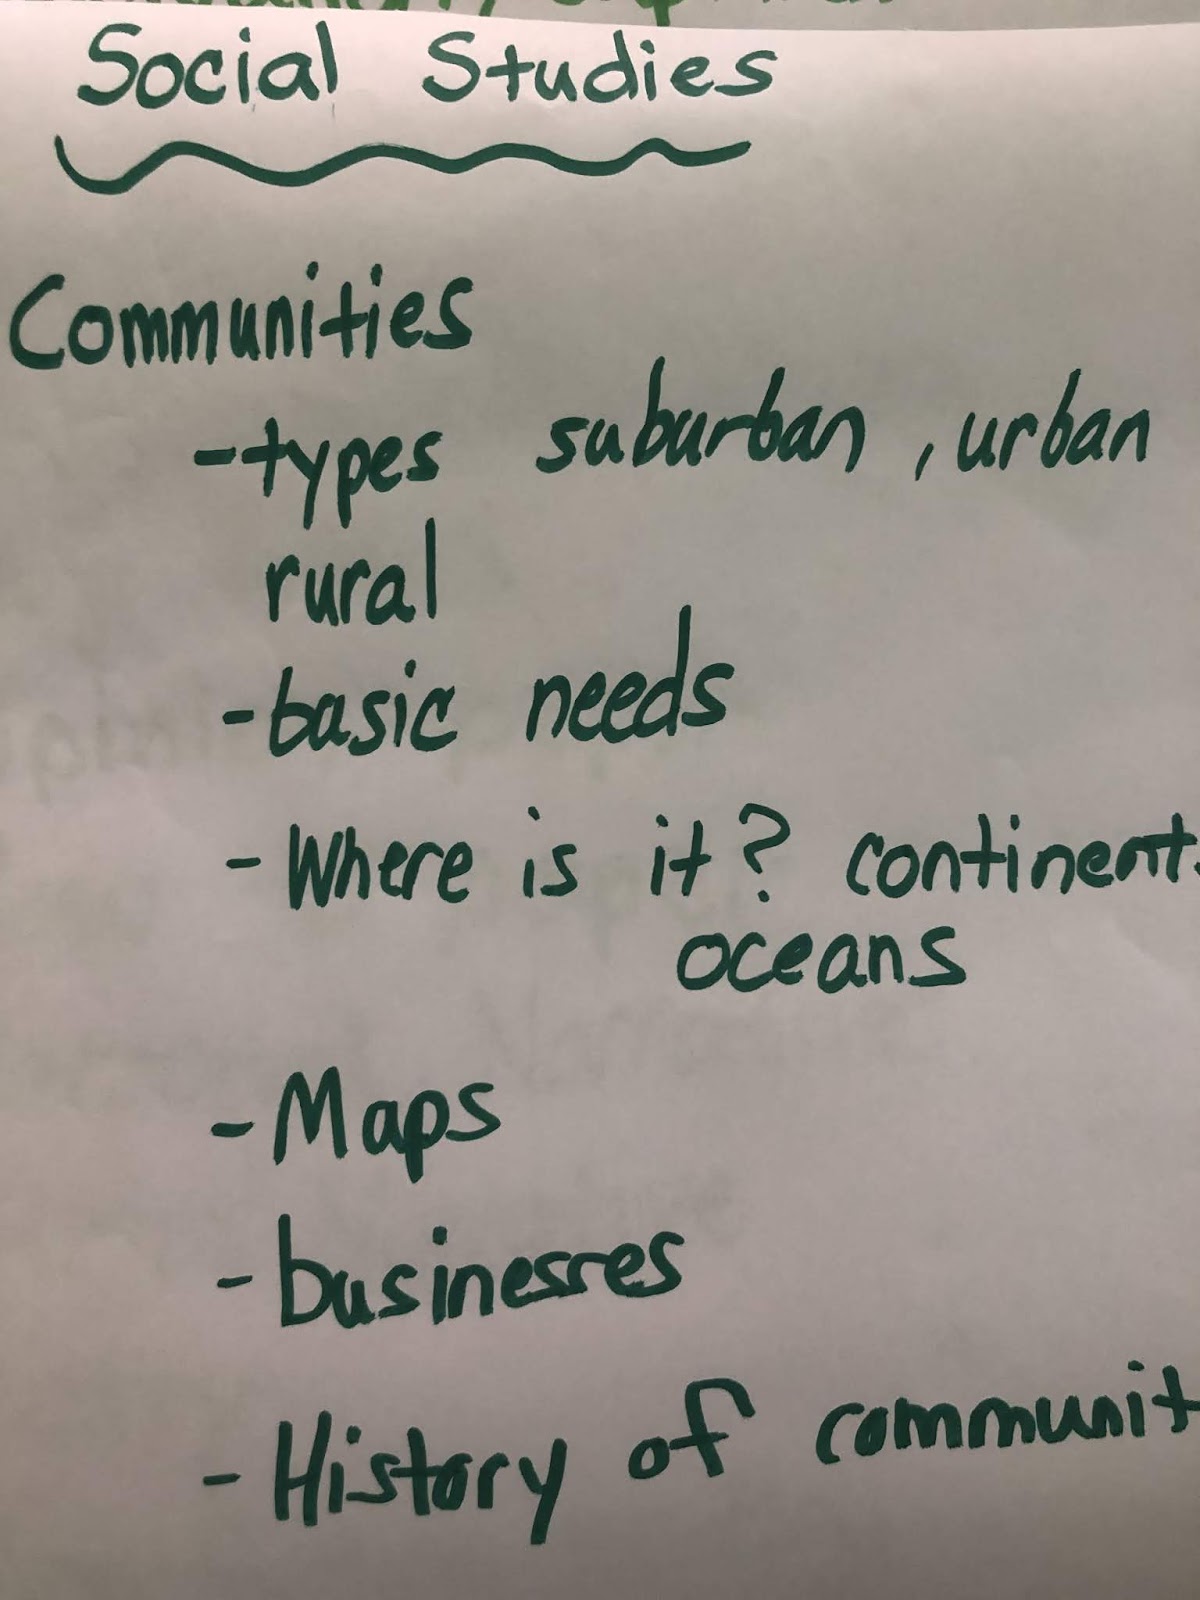 Social Studies
Communities
- types suburban, urban
rural
- basic needs
- Where is it? continents
oceans
- Maps
- businesses
- History of communit